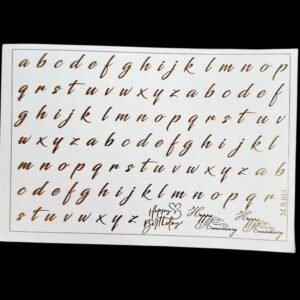 a b c d e f g h i j k l m n o p
q r s t u v w x y z a b c d e f
g h i j k l m n o p q r s t u v
u v w x y z a b c d e f g h i j k l
m n o p q r s t u v w x y z a b
c d e f g h i j k l m n o p q r
s t u v w x y z Happy Birthday Happy Anniversary Happy Anniversary
M.R.014